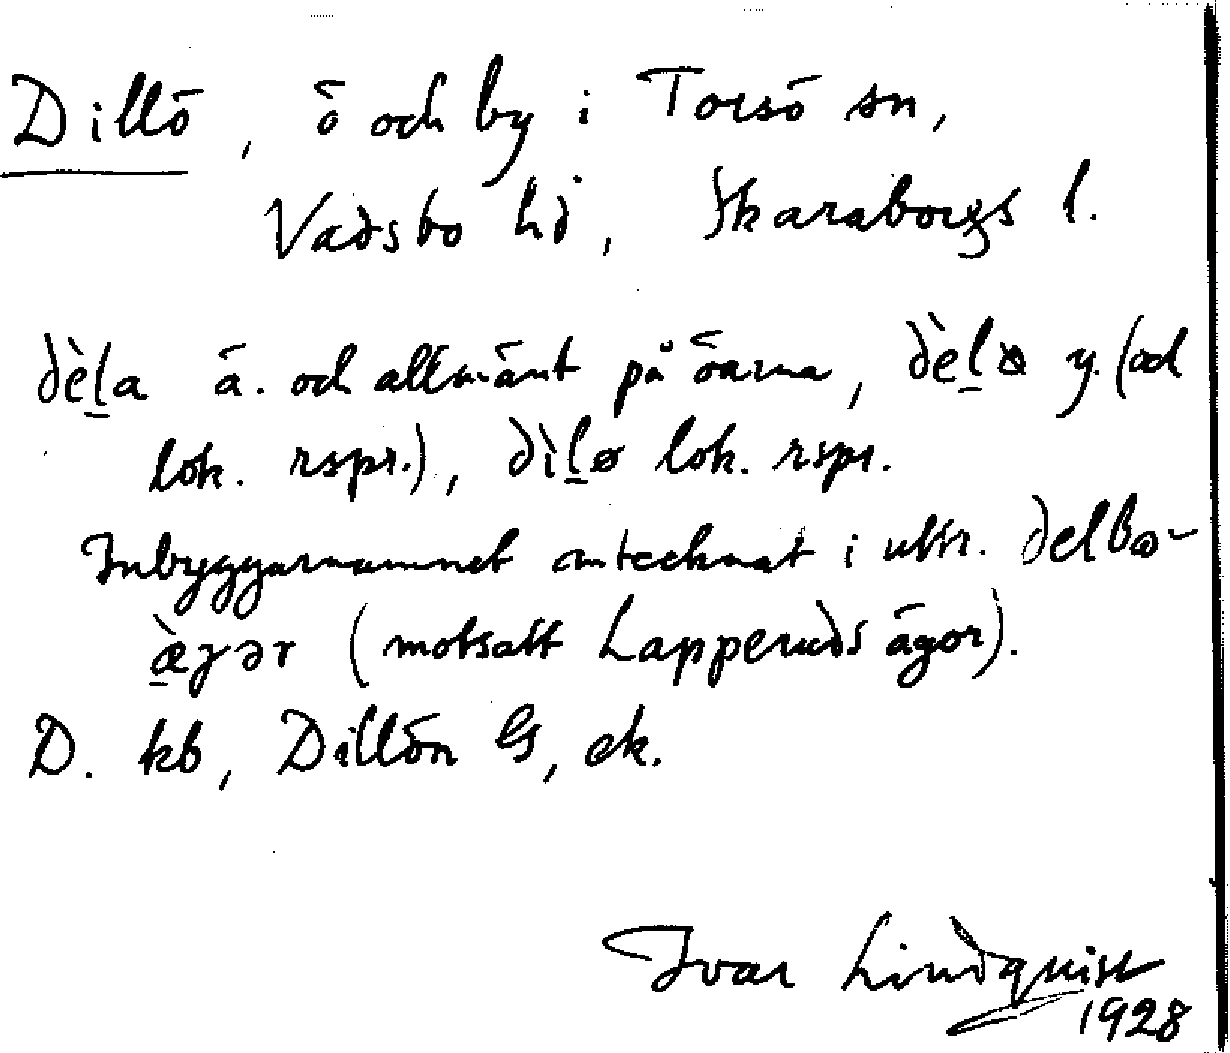 Dillö, ö och by i Torsö sn,
Vadsbo hd, Skaraborgs l.
dèl̲a ä. och allmänt på öarna, dèl̲ø y. (och
lok. rspr.), dìl̲ø lok. rspr.
Inbyggarnamnet antecknat i uttr. delbo-
æ̲̀gər (motsatt Lapperuds ägor).
D. kb, Dillön G, ek.
Ivar Lindquist
1928